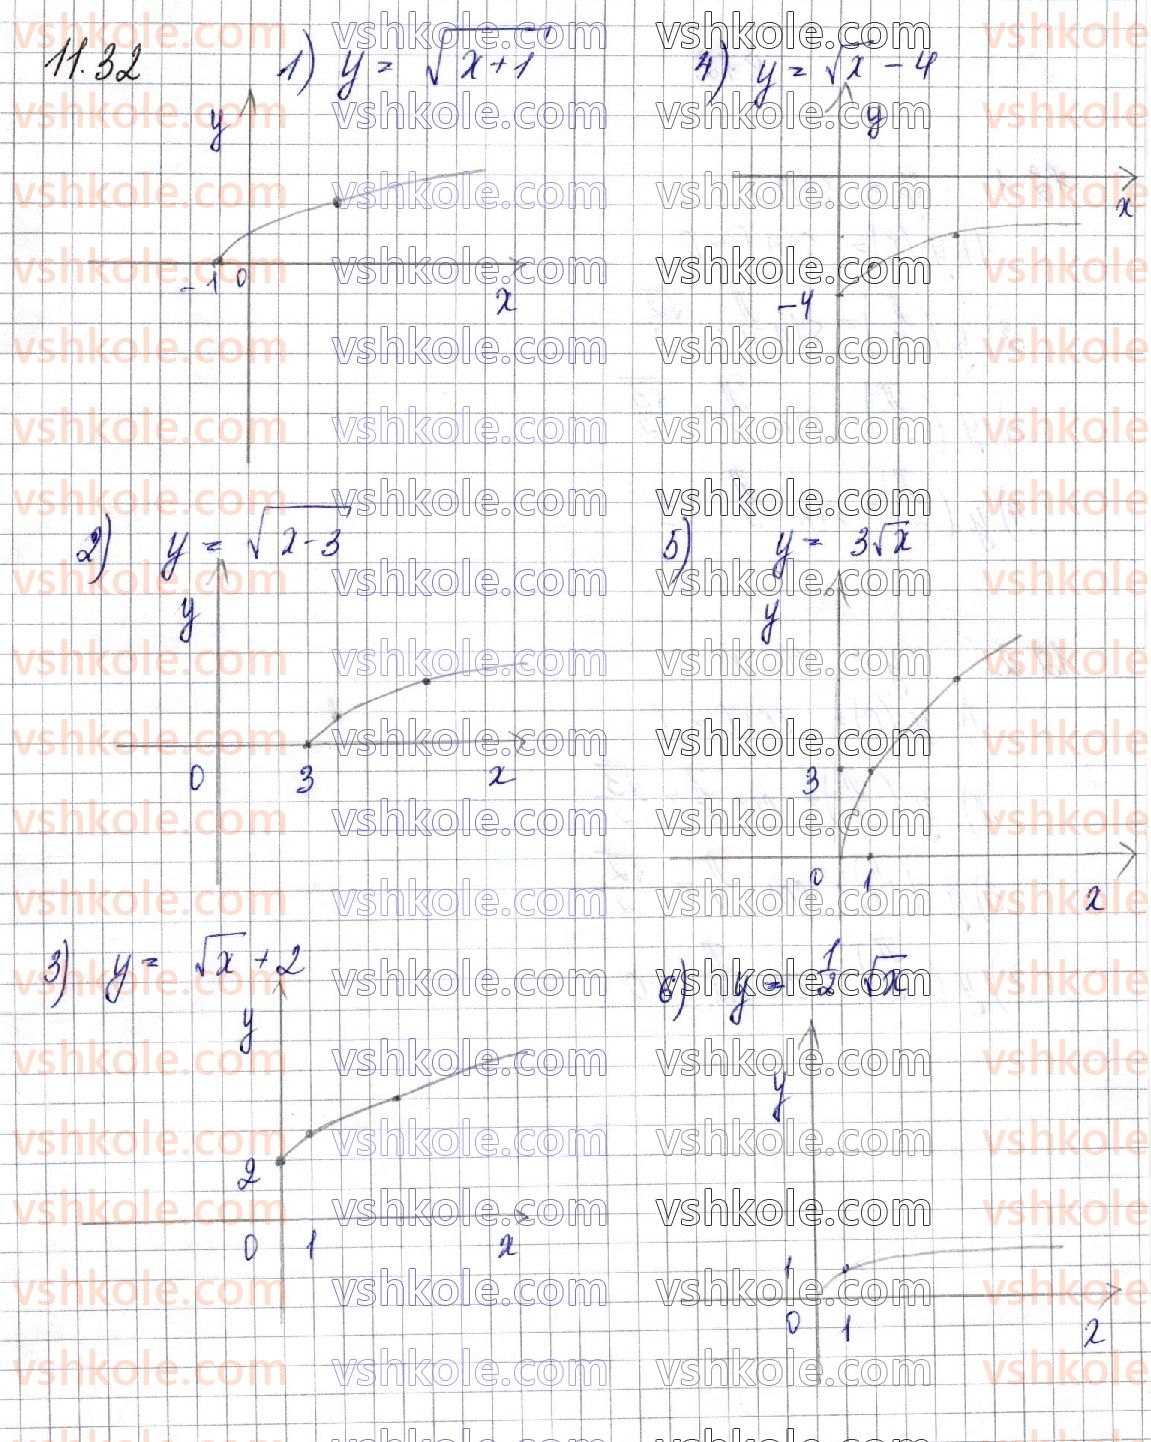 11.32
1) y = √(x+1)
y
-1 0
x
4) y = √x - 4
y
x
-4
2) y = √(x-3)
y
0 3 x
5) y = 3√x
y
3
0 1
x
3) y = √x + 2
y
2
0 1 x
6) y = 1/2 √x
y
1
0 1 x
vshkole.com